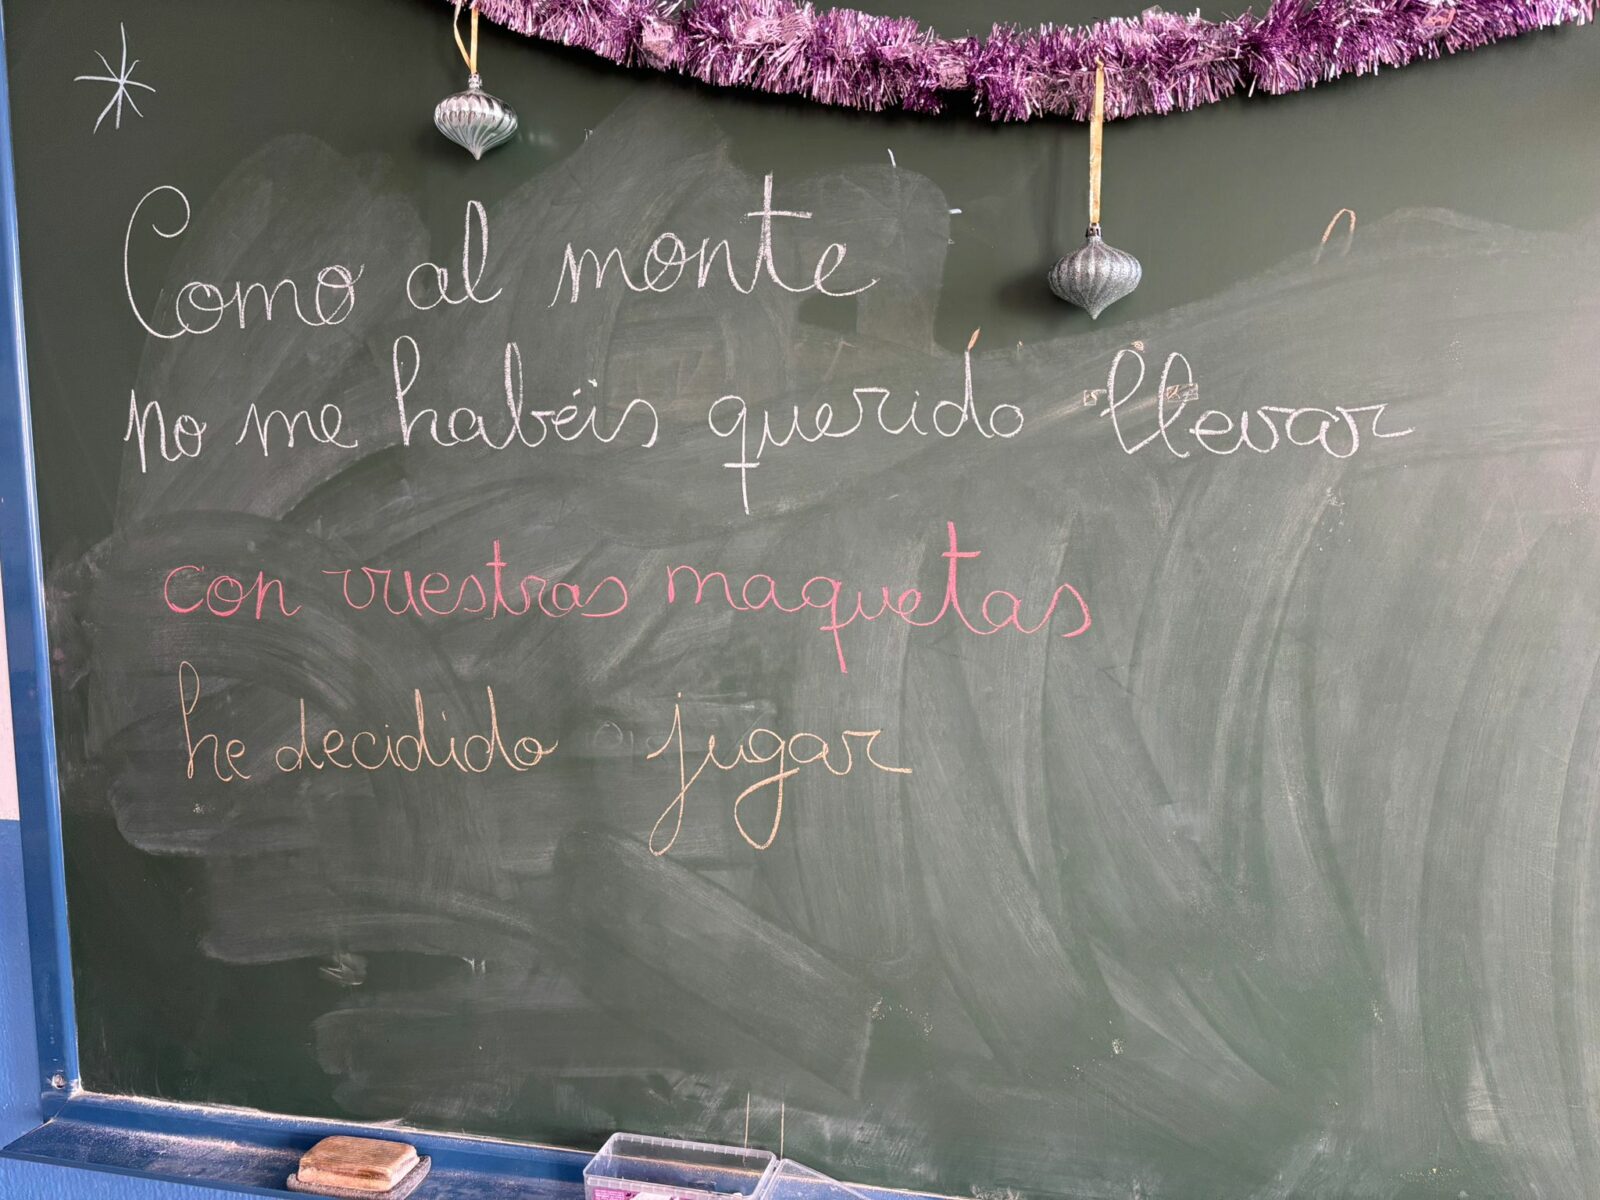 Como al monte
no me habéis querido llevar
con vuestras maquetas
he decidido jugar